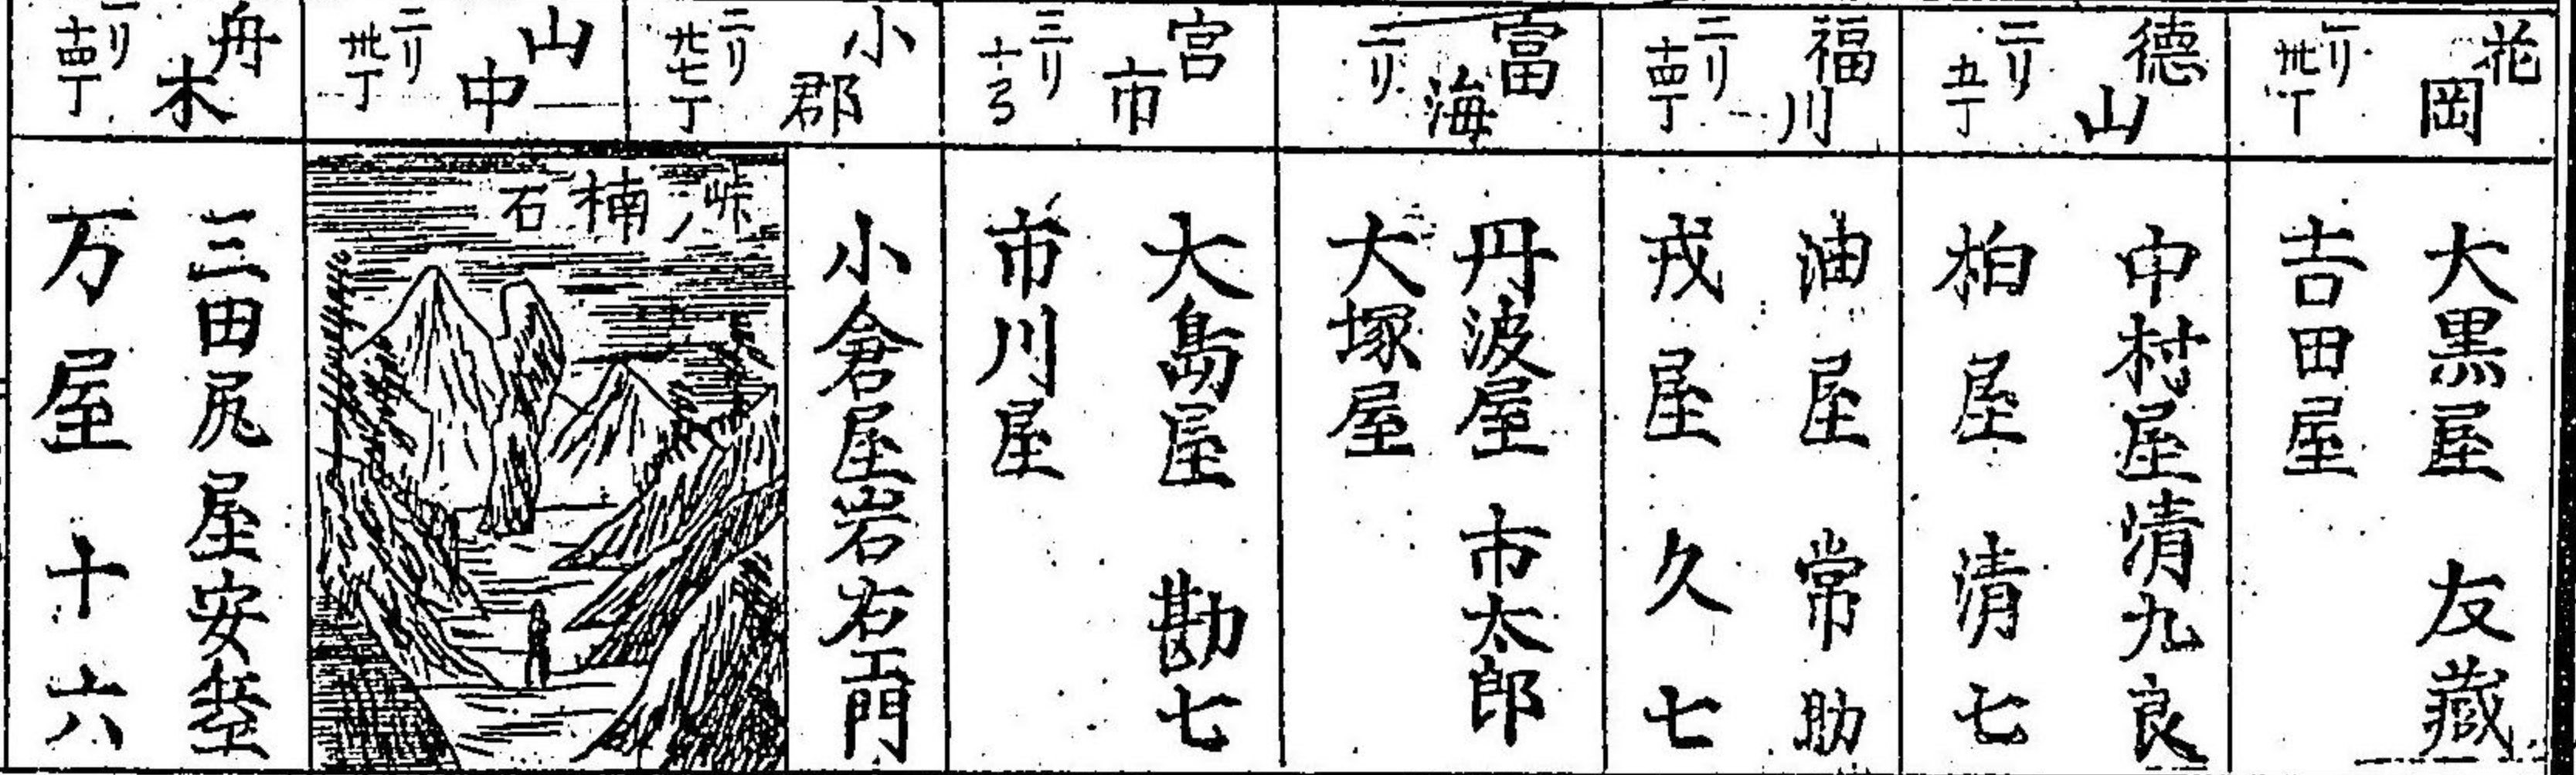 花岡
一リ
卅一丁
大黒屋 友藏
吉田屋
德山
二リ
五丁
中村屋清九良
柏屋 清七
福川
二リ
十四丁
油屋 常助
戎屋 久七
富海
二リ
丹波屋 市太郎
大塚屋
宮市
三リ
十弓
大島屋 勘七
市川屋
小郡
二リ
廿七丁
小倉屋岩右エ門
山中
二リ
卅丁
石楠ノ峠
舟木
一リ
十四丁
三田尻屋安
万屋 十六